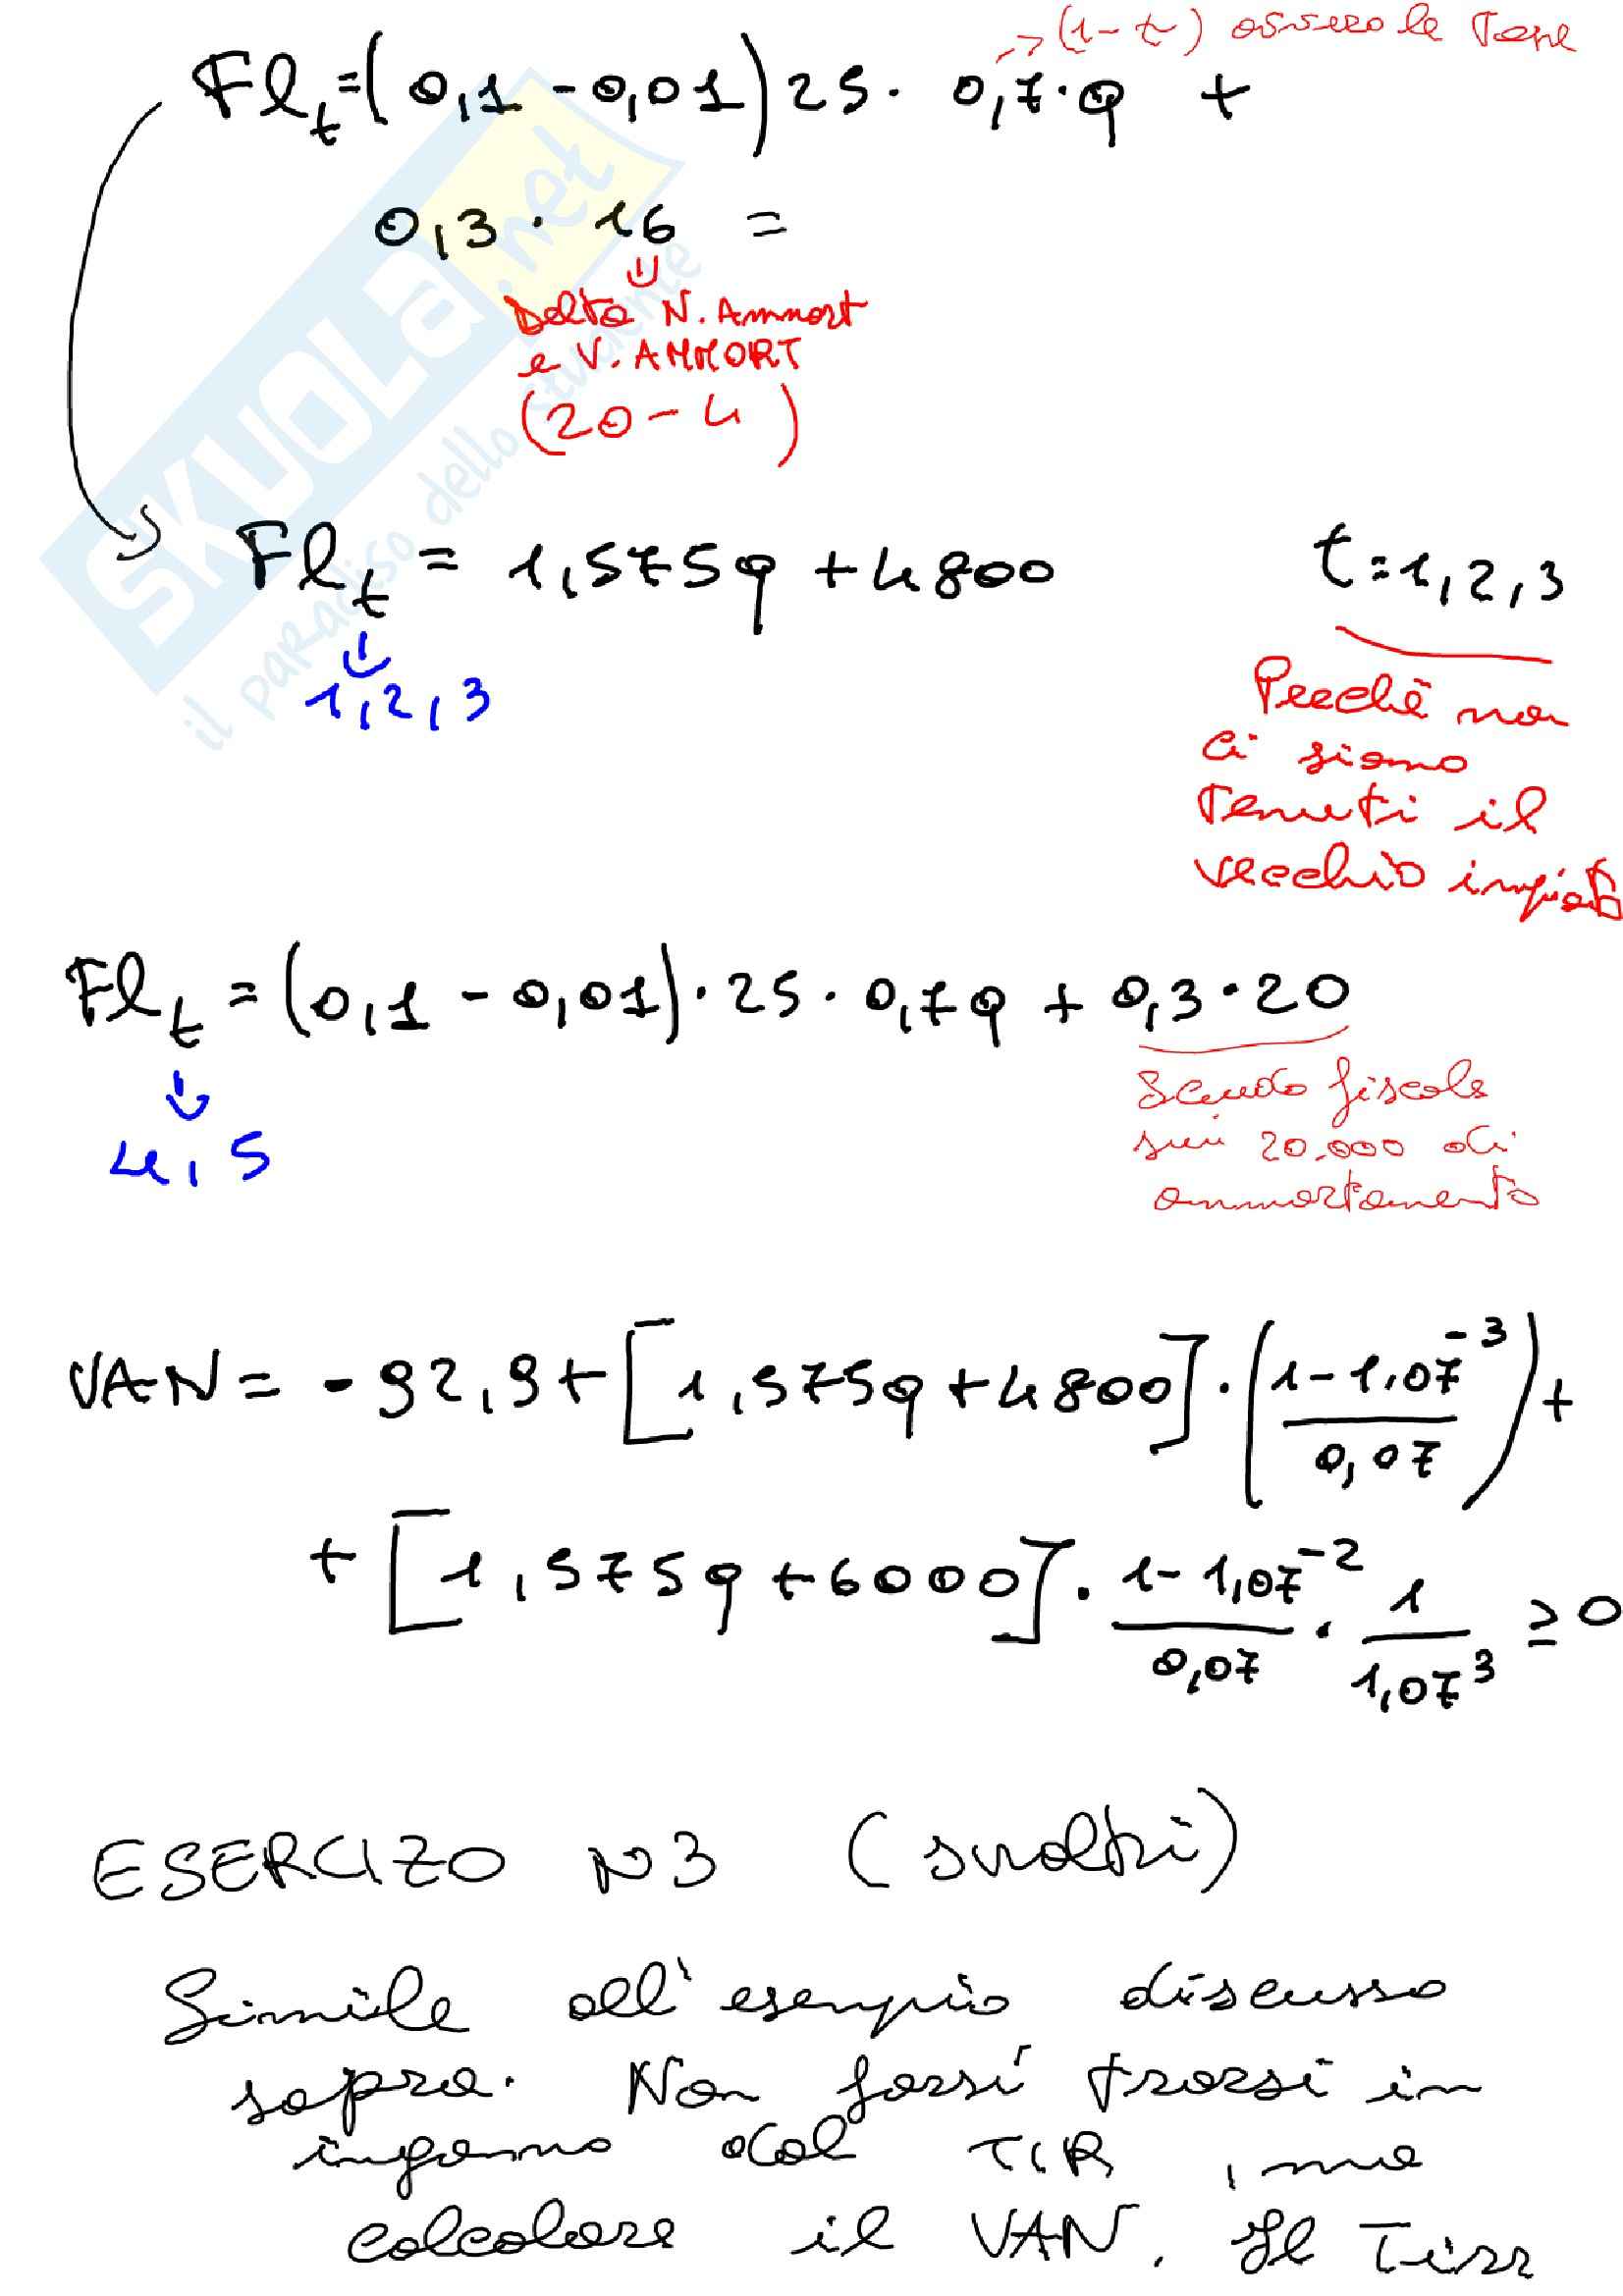 →(1-t) ossero le Tasse
Fl_t=(0,1-0,01)25·0,7·q +
0,3·16 =
Delta N. Ammort
e V. AMMORT
(20-4)
Fl_t = 1,575q+4800 t=1,2,3
1,2,3
Perchè non
ci siamo
Tenuti il
vecchio impianto
Fl_t=(0,1-0,01)·25·0,7q+0,3·20
4,5
Scudo fiscale
sui 20.000 di
ammortamento
VAN= -92,9+[1,575q+4800]·((1-1,07^-3)/0,07)+
+[1,575q+6000]·(1-1,07^-2)/0,07·1/1,07^3 ≥0
ESERCIZO N3 (svolti)
Simile all'esempio discusso
sopra. Non farsi trarsi in
inganno dal TIR, ma
calcolare il VAN. Il Tirr
SKUOLA.net
il paradiso dello studente